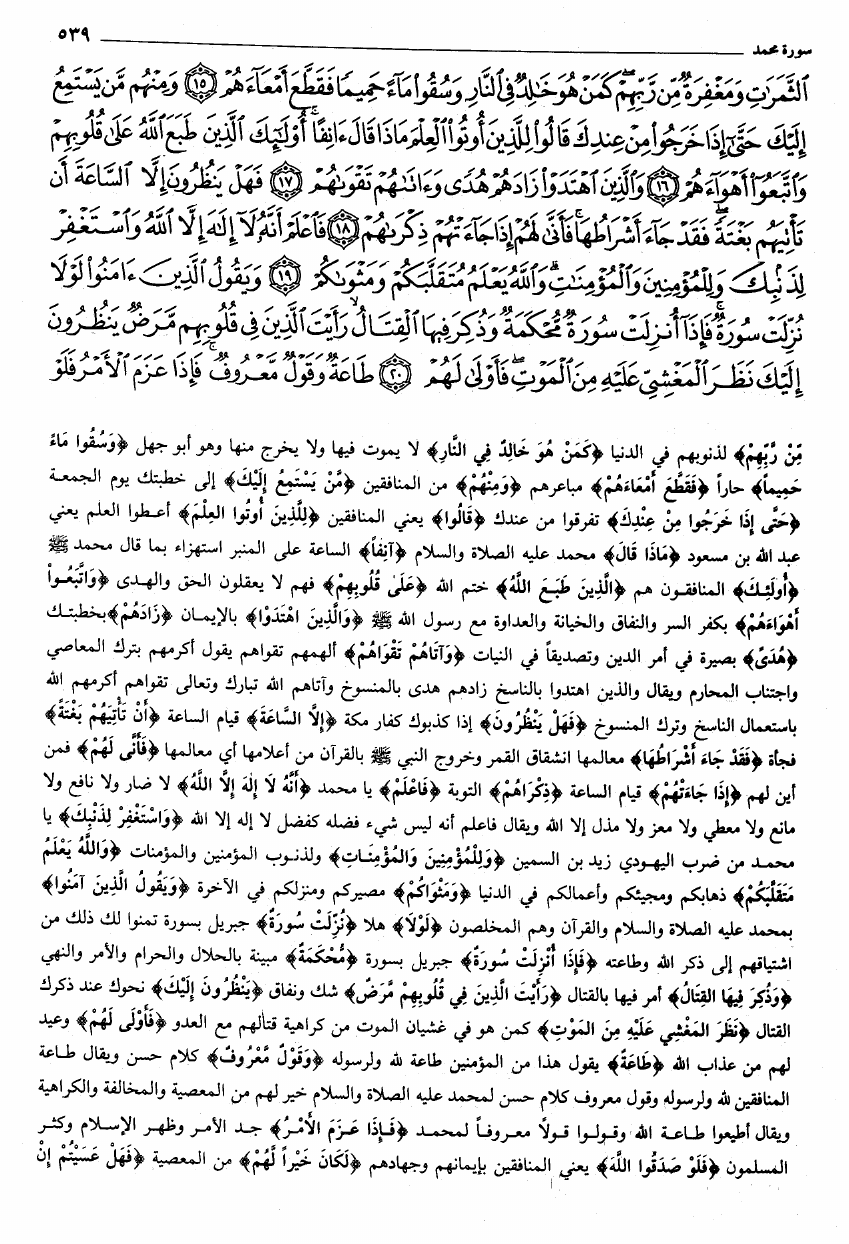 سورة محمد ٥٣٩
الثَّمَرَٰتِ وَمَغْفِرَةٌ مِّن رَّبِّهِمْ ۖ كَمَنْ هُوَ خَٰلِدٌ فِى النَّارِ وَسُقُوا۟ مَآءً حَمِيمًا فَقَطَّعَ أَمْعَآءَهُمْ ١٥ وَمِنْهُم مَّن يَسْتَمِعُ
إِلَيْكَ حَتَّىٰٓ إِذَا خَرَجُوا۟ مِنْ عِندِكَ قَالُوا۟ لِلَّذِينَ أُوتُوا۟ الْعِلْمَ مَاذَا قَالَ ءَانِفًا ۚ أُو۟لَٰٓئِكَ الَّذِينَ طَبَعَ اللَّهُ عَلَىٰ قُلُوبِهِمْ
وَاتَّبَعُوٓا۟ أَهْوَآءَهُمْ ١٦ وَالَّذِينَ اهْتَدَوْا۟ زَادَهُمْ هُدًى وَءَاتَىٰهُمْ تَقْوَىٰهُمْ ١٧ فَهَلْ يَنظُرُونَ إِلَّا السَّاعَةَ أَن
تَأْتِيَهُم بَغْتَةً ۖ فَقَدْ جَآءَ أَشْرَاطُهَا ۚ فَأَنَّىٰ لَهُمْ إِذَا جَآءَتْهُمْ ذِكْرَىٰهُمْ ١٨ فَاعْلَمْ أَنَّهُۥ لَآ إِلَٰهَ إِلَّا اللَّهُ وَاسْتَغْفِرْ
لِذَنۢبِكَ وَلِلْمُؤْمِنِينَ وَالْمُؤْمِنَٰتِ ۗ وَاللَّهُ يَعْلَمُ مُتَقَلَّبَكُمْ وَمَثْوَىٰكُمْ ١٩ وَيَقُولُ الَّذِينَ ءَامَنُوا۟ لَوْلَا
نُزِّلَتْ سُورَةٌ ۖ فَإِذَآ أُنزِلَتْ سُورَةٌ مُّحْكَمَةٌ وَذُكِرَ فِيهَا الْقِتَالُ ۙ رَأَيْتَ الَّذِينَ فِى قُلُوبِهِم مَّرَضٌ يَنظُرُونَ
إِلَيْكَ نَظَرَ الْمَغْشِىِّ عَلَيْهِ مِنَ الْمَوْتِ ۖ فَأَوْلَىٰ لَهُمْ ٢٠ طَاعَةٌ وَقَوْلٌ مَّعْرُوفٌ ۚ فَإِذَا عَزَمَ الْأَمْرُ فَلَوْ
مِّن رَّبِّهِمْ﴾ لذنوبهم في الدنيا ﴿كَمَنْ هُوَ خَالِدٌ فِي النَّارِ﴾ لا يموت فيها ولا يخرج منها وهو أبو جهل ﴿وَسُقُوا مَاءً
حَمِيماً﴾ حاراً ﴿فَقَطَّعَ أَمْعَاءَهُمْ﴾ مباعرهم ﴿وَمِنْهُمْ﴾ من المنافقين ﴿مَّنْ يَسْتَمِعُ إِلَيْكَ﴾ إلى خطبتك يوم الجمعة
﴿حَتَّى إِذَا خَرَجُوا مِنْ عِنْدِكَ﴾ تفرقوا من عندك ﴿قَالُوا﴾ يعني المنافقين ﴿لِلَّذِينَ أُوتُوا العِلْمَ﴾ أعطوا العلم يعني
عبد الله بن مسعود ﴿مَاذَا قَالَ﴾ محمد عليه الصلاة والسلام ﴿آنِفاً﴾ الساعة على المنبر استهزاء بما قال محمد ﷺ
﴿أُولَئِكَ﴾ المنافقون هم ﴿الَّذِينَ طَبَعَ اللَّهُ﴾ ختم الله ﴿عَلَى قُلُوبِهِمْ﴾ فهم لا يعقلون الحق والهدى ﴿وَاتَّبَعُوا
أَهْوَاءَهُمْ﴾ بكفر السر والنفاق والخيانة والعداوة مع رسول الله ﷺ ﴿وَالَّذِينَ اهْتَدَوْا﴾ بالإيمان ﴿زَادَهُمْ﴾ بخطبتك
﴿هُدًى﴾ بصيرة في أمر الدين وتصديقاً في النيات ﴿وَآتَاهُمْ تَقْوَاهُمْ﴾ ألهمهم تقواهم يقول أكرمهم بترك المعاصي
واجتناب المحارم ويقال والذين اهتدوا بالناسخ زادهم هدى بالمنسوخ وآتاهم الله تبارك وتعالى تقواهم أكرمهم الله
باستعمال الناسخ وترك المنسوخ ﴿فَهَلْ يَنْظُرُونَ﴾ إذا كذبوك كفار مكة ﴿إِلَّا السَّاعَةَ﴾ قيام الساعة ﴿أَنْ تَأْتِيَهُمْ بَغْتَةً﴾
فجأة ﴿فَقَدْ جَاءَ أَشْرَاطُهَا﴾ معالمها انشقاق القمر وخروج النبي ﷺ بالقرآن من أعلامها أي معالمها ﴿فَأَنَّى لَهُمْ﴾ فمن
أين لهم ﴿إِذَا جَاءَتْهُمْ﴾ قيام الساعة ﴿ذِكْرَاهُمْ﴾ التوبة ﴿فَاعْلَمْ﴾ يا محمد ﴿أَنَّهُ لَا إِلَهَ إِلَّا اللَّهُ﴾ لا ضار ولا نافع ولا
مانع ولا معطي ولا معز ولا مذل إلا الله ويقال فاعلم أنه ليس شيء فضله كفضل لا إله إلا الله ﴿وَاسْتَغْفِرْ لِذَنْبِكَ﴾ يا
محمد من ضرب اليهودي زيد بن السمين ﴿وَلِلْمُؤْمِنِينَ وَالمُؤْمِنَاتِ﴾ ولذنوب المؤمنين والمؤمنات ﴿وَاللَّهُ يَعْلَمُ
مَتَقَلَّبَكُمْ﴾ ذهابكم ومجيئكم وأعمالكم في الدنيا ﴿وَمَثْوَاكُمْ﴾ مصيركم ومنزلكم في الآخرة ﴿وَيَقُولُ الَّذِينَ آمَنُوا﴾
بمحمد عليه الصلاة والسلام والقرآن وهم المخلصون ﴿لَوْلَا﴾ هلا ﴿نُزِّلَتْ سُورَةٌ﴾ جبريل بسورة تمنوا لك ذلك من
اشتياقهم إلى ذكر الله وطاعته ﴿فَإِذَا أُنْزِلَتْ سُورَةٌ﴾ جبريل بسورة ﴿مُّحْكَمَةٌ﴾ مبينة بالحلال والحرام والأمر والنهي
﴿وَذُكِرَ فِيهَا القِتَالُ﴾ أمر فيها بالقتال ﴿رَأَيْتَ الَّذِينَ فِي قُلُوبِهِمْ مَّرَضٌ﴾ شك ونفاق ﴿يَنْظُرُونَ إِلَيْكَ﴾ نحوك عند ذكرك
القتال ﴿نَظَرَ المَغْشِي عَلَيْهِ مِنَ المَوْتِ﴾ كمن هو في غشيان الموت من كراهية قتالهم مع العدو ﴿فَأَوْلَى لَهُمْ﴾ وعيد
لهم من عذاب الله ﴿طَاعَةٌ﴾ يقول هذا من المؤمنين طاعة لله ولرسوله ﴿وَقَوْلٌ مَّعْرُوفٌ﴾ كلام حسن ويقال طاعة
المنافقين لله ولرسوله وقول معروف كلام حسن لمحمد عليه الصلاة والسلام خير لهم من المعصية والمخالفة والكراهية
ويقال أطيعوا طاعة الله وقولوا قولاً معروفاً لمحمد ﴿فَإِذَا عَزَمَ الأَمْرُ﴾ جد الأمر وظهر الإسلام وكثر
المسلمون ﴿فَلَوْ صَدَقُوا اللَّهَ﴾ يعني المنافقين بإيمانهم وجهادهم ﴿لَكَانَ خَيْراً لَّهُمْ﴾ من المعصية ﴿فَهَلْ عَسَيْتُمْ إِنْ